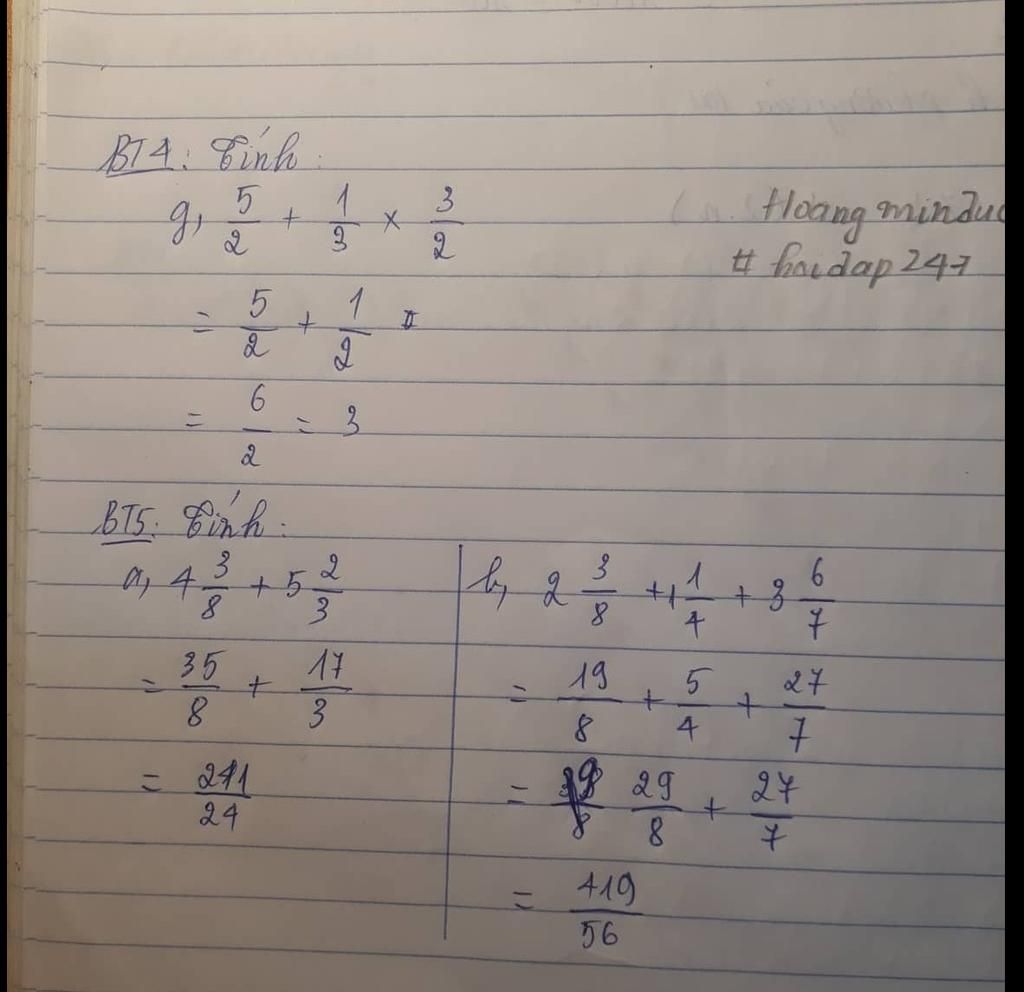 BT4: Tính:
g, 5/2 + 1/3 × 3/2
Hoang minduc
# hoidap 247
= 5/2 + 1/2
= 6/2 = 3
BT5: Tính:
a, 4 3/8 + 5 2/3
= 35/8 + 17/3
= 241/24
b, 2 3/8 + 1 1/4 + 3 6/7
= 19/8 + 5/4 + 27/7
= 29/8 + 27/7
= 419/56